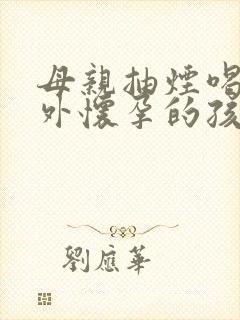 母親抽煙喝
外懷孕的孩
劉應華